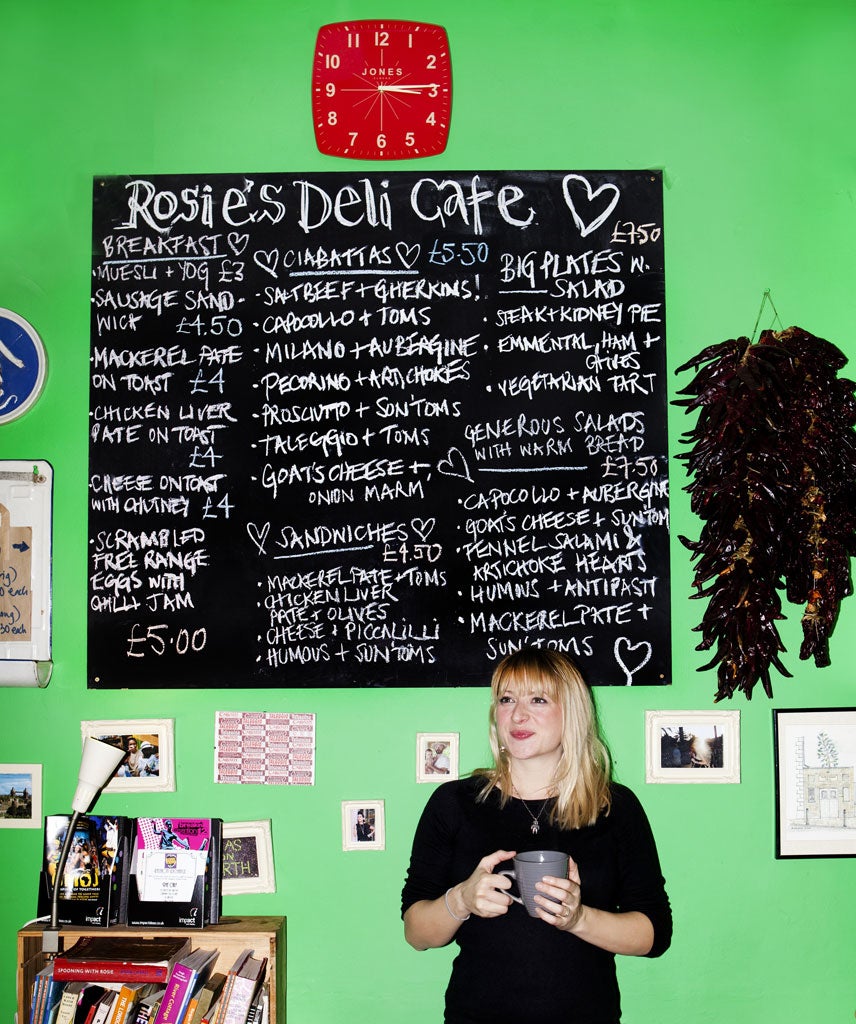 11 12
10 2
JONES
9 3
8 4
7 6 5
ROSIE'S DELI CAFE
BREAKFAST
• MUESLI + YOG £3
• SAUSAGE SAND-
WICH £4.50
• MACKEREL PATE
ON TOAST £4
• CHICKEN LIVER
PATE ON TOAST
£4
• CHEESE ON TOAST
WITH CHUTNEY £4
• SCRAMBLED
FREE RANGE
EGGS WITH
CHILLI JAM
£5.00
CIABATTAS £5.50
• SALT BEEF + GHERKINS!
• CAPOCOLLO + TOMS
• MILANO + AUBERGINE
• PECORINO + ARTICHOKES
• PROSCIUTTO + SUN'TOMS
• TALEGGIO + TOMS
• GOAT'S CHEESE +
ONION MARM
SANDWICHES
£4.50
• MACKEREL PATE + TOMS
• CHICKEN LIVER
PATE + OLIVES
• CHEESE + PICCALILLI
• HUMOUS + SUN'TOMS
£7.50
BIG PLATES W.
SALAD
• STEAK + KIDNEY PIE
• EMMENTAL, HAM +
CHIVES
• VEGETARIAN TART
GENEROUS SALADS
WITH WARM BREAD
£7.50
• CAPOCOLLO + AUBERGINE
• GOAT'S CHEESE + SUN'TOM
• FENNEL SALAMI &
ARTICHOKE HEARTS
• HUMMUS + ANTIPASTI
• MACKEREL PATE +
SUN'TOMS
each
each
impact
impact
SPOONING WITH ROSIE
River Cottage